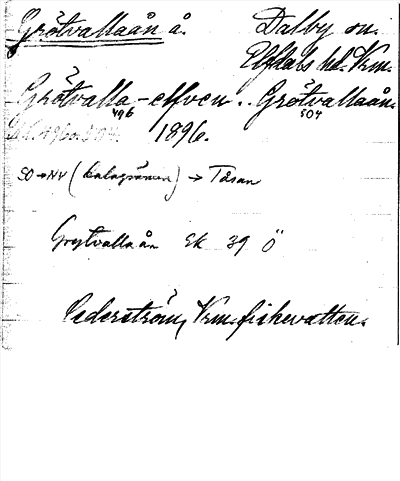 Grötvallaån å. Dalby sn.
Elfdals hd. Vrm.
Grötvalla-elfven .. Grötvallaån.
496 504
1896.
SO→NV (Dalagränsen) → Tåsan
Grötvallaån Ek 39 Ö
Cederström, Vrm. fiskevatten.